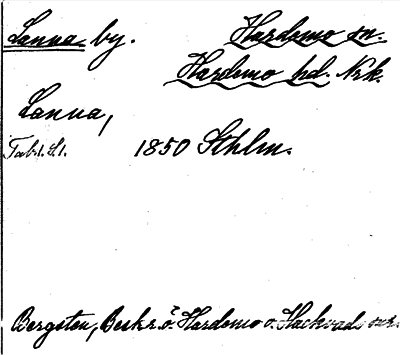 Lanna by.
Hardemo sn.
Hardemo hd. Nrk.
Lanna,
Tab. I. L1. 1850 Sthlm.
Bergsten, Beskr. ö. Hardemo o. Hackvads snr.